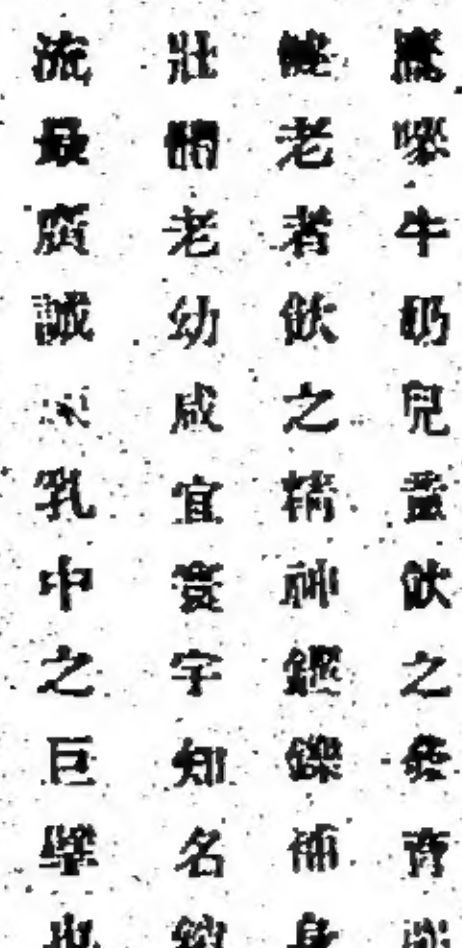 鷹嘜牛奶兒童飲之發育強
健老者飲之精神鑠補身
壯體老幼咸宜寰宇知名銷
流最廣誠乳中之巨擘也